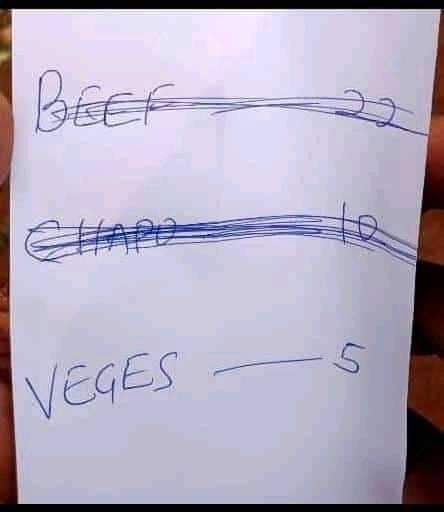 BEEF 22
CHAPO 10
VEGES — 5